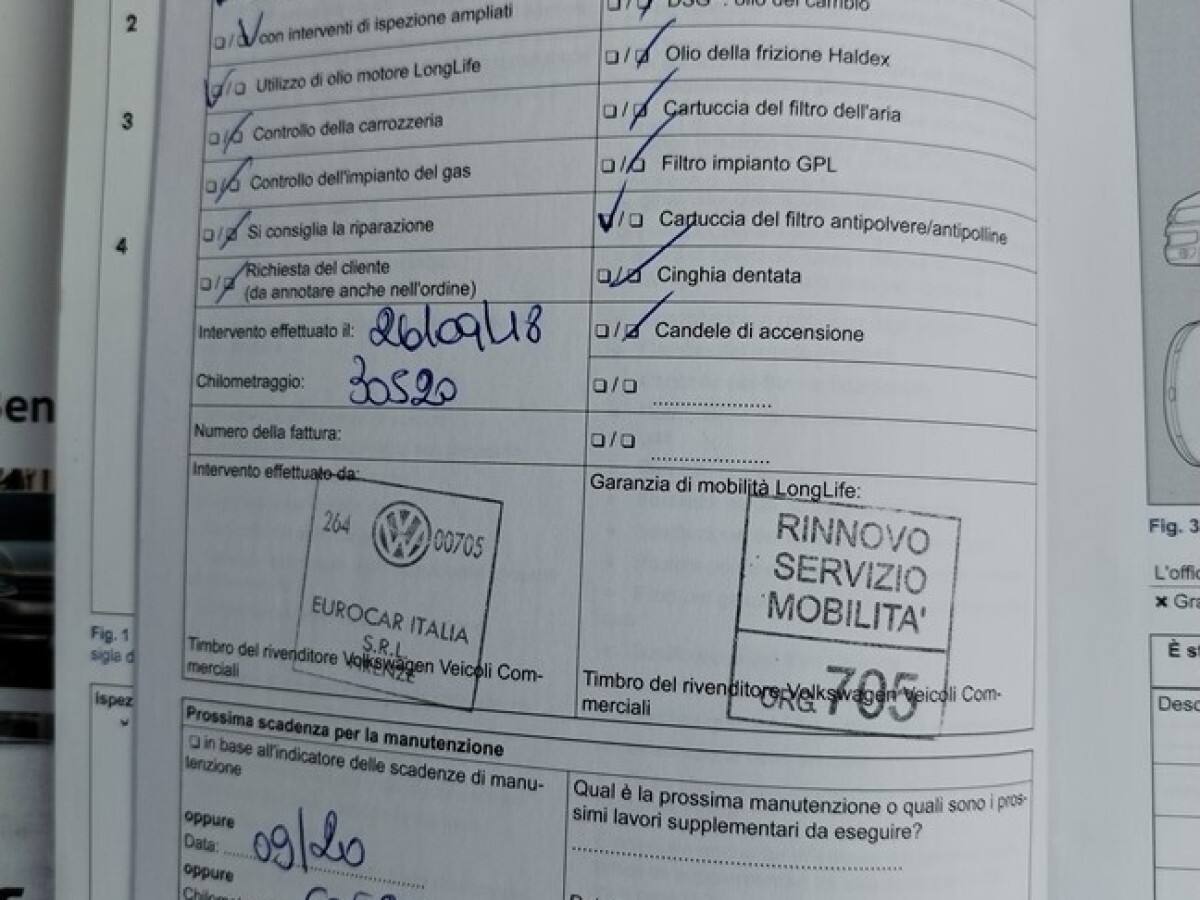 2
❏ / ❏ con interventi di ispezione ampliati
❏ / ❏ Utilizzo di olio motore LongLife
3
❏ / ❏ Controllo della carrozzeria
❏ / ❏ Controllo dell'impianto del gas
4
❏ / ❏ Si consiglia la riparazione
❏ / ❏ Richiesta del cliente
(da annotare anche nell'ordine)
Intervento effettuato il: 26/09/18
Chilometraggio: 30520
Numero della fattura:
Intervento effettuato da:
264 00705
EUROCAR ITALIA
S.R.L.
FIRENZE
Timbro del rivenditore Volkswagen Veicoli Com-
merciali
❏ / ❏ DSG : olio del cambio
❏ / ❏ Olio della frizione Haldex
❏ / ❏ Cartuccia del filtro dell'aria
❏ / ❏ Filtro impianto GPL
❏ / ❏ Cartuccia del filtro antipolvere/antipolline
❏ / ❏ Cinghia dentata
❏ / ❏ Candele di accensione
❏ / ❏ ....................
❏ / ❏ ....................
Garanzia di mobilità LongLife:
RINNOVO
SERVIZIO
MOBILITA'
ORG 705
Timbro del rivenditore Volkswagen Veicoli Com-
merciali
Prossima scadenza per la manutenzione
❏ in base all'indicatore delle scadenze di manu-
tenzione
oppure
Data: 09/20
oppure
Qual è la prossima manutenzione o quali sono i pros-
simi lavori supplementari da eseguire?
Fig. 1
sigla d
Ispez
Fig. 3
L'offic
✖ Gra
È st
Desc